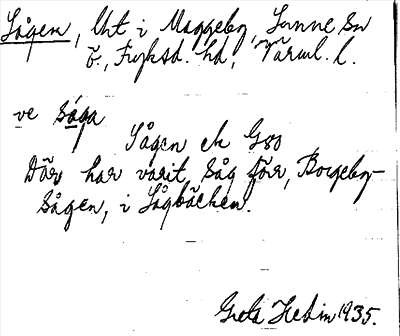 Sågen, Uht i Maggeby, Sunne sn
Ö., Fryksd. hd, Värml. l.
ve såga
Sågen ek G80
Där har varit såg förr, Borgeby-
sågen, i Sågbäcken.
Greta Hedin 1935.